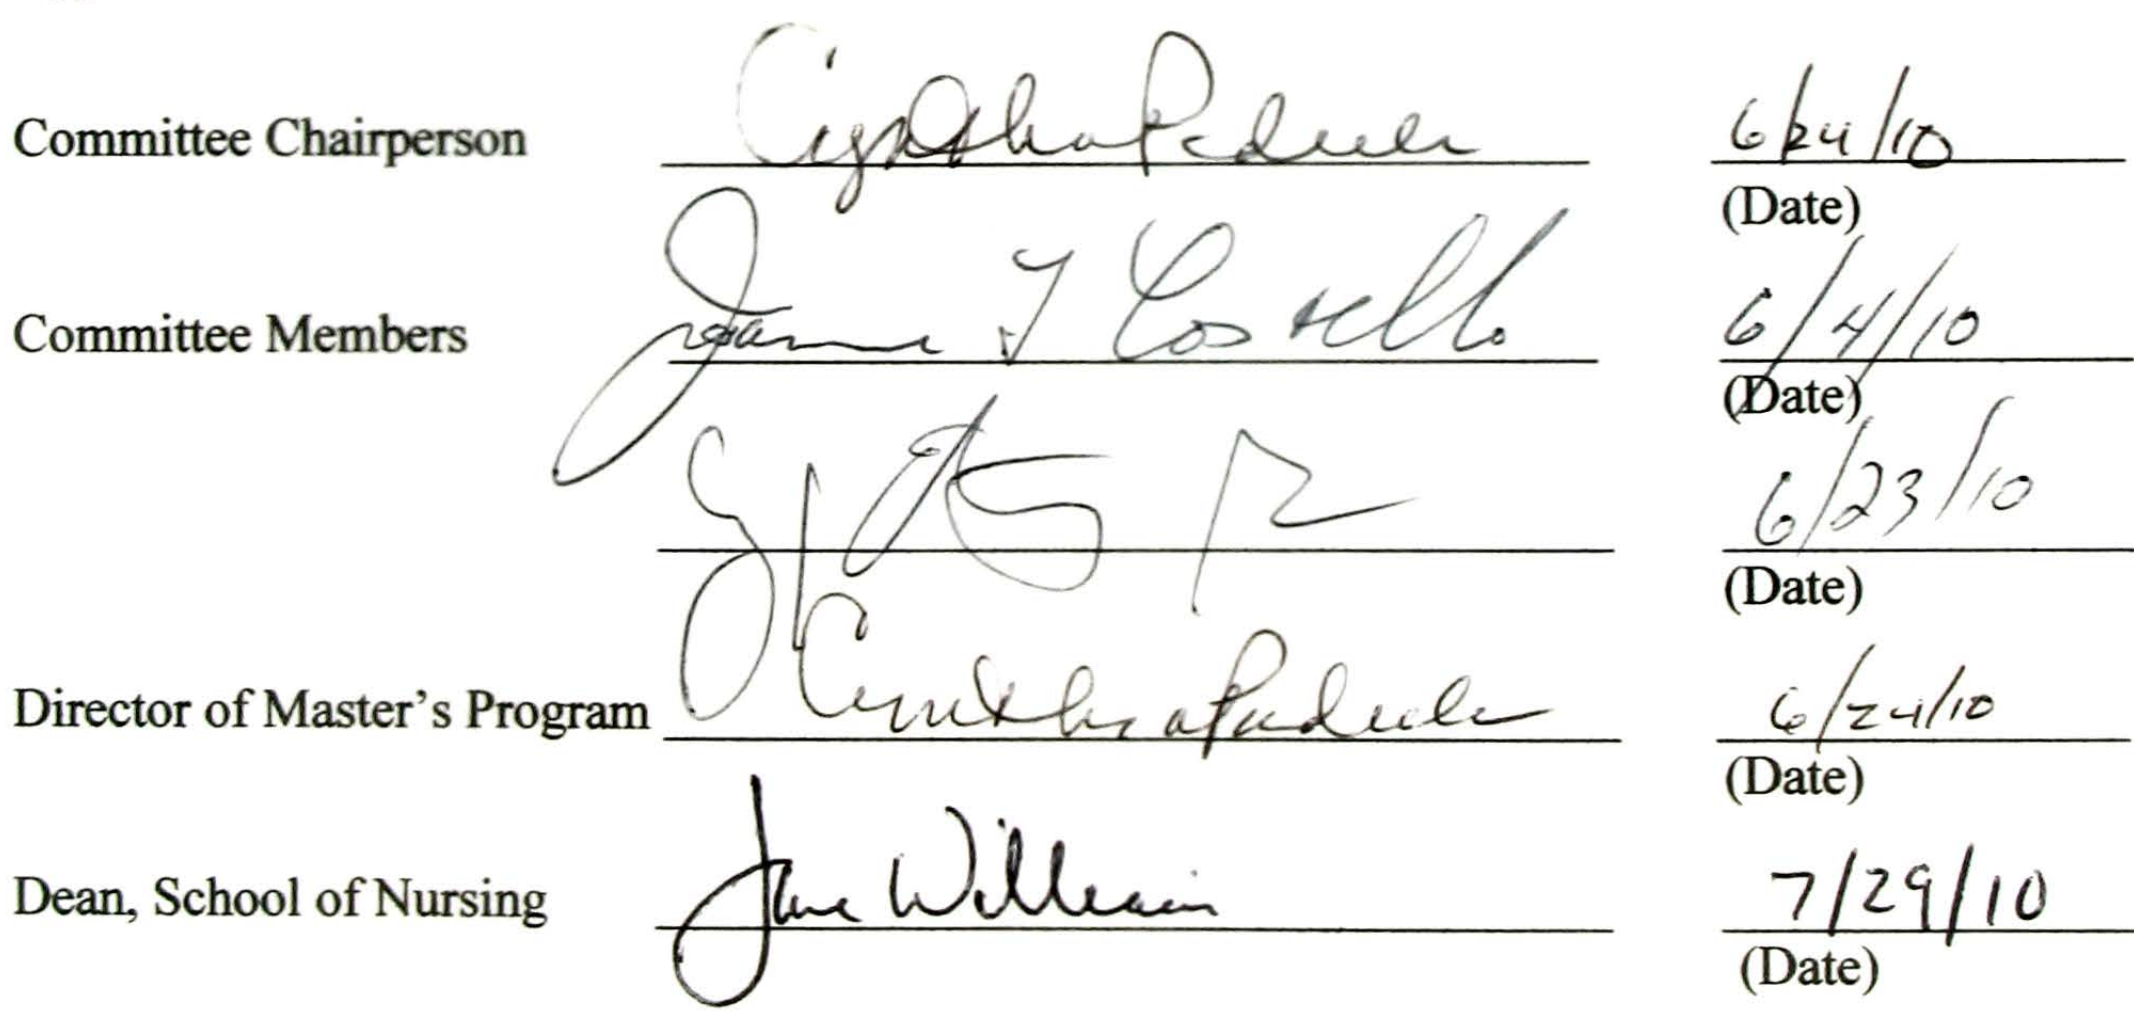 Committee Chairperson Cynthia Padula 6/24/10
(Date)
Committee Members Joanne Costello 6/4/10
(Date)
6/23/10
(Date)
Director of Master's Program Cynthia Padula 6/24/10
(Date)
Dean, School of Nursing Jane Williams 7/29/10
(Date)